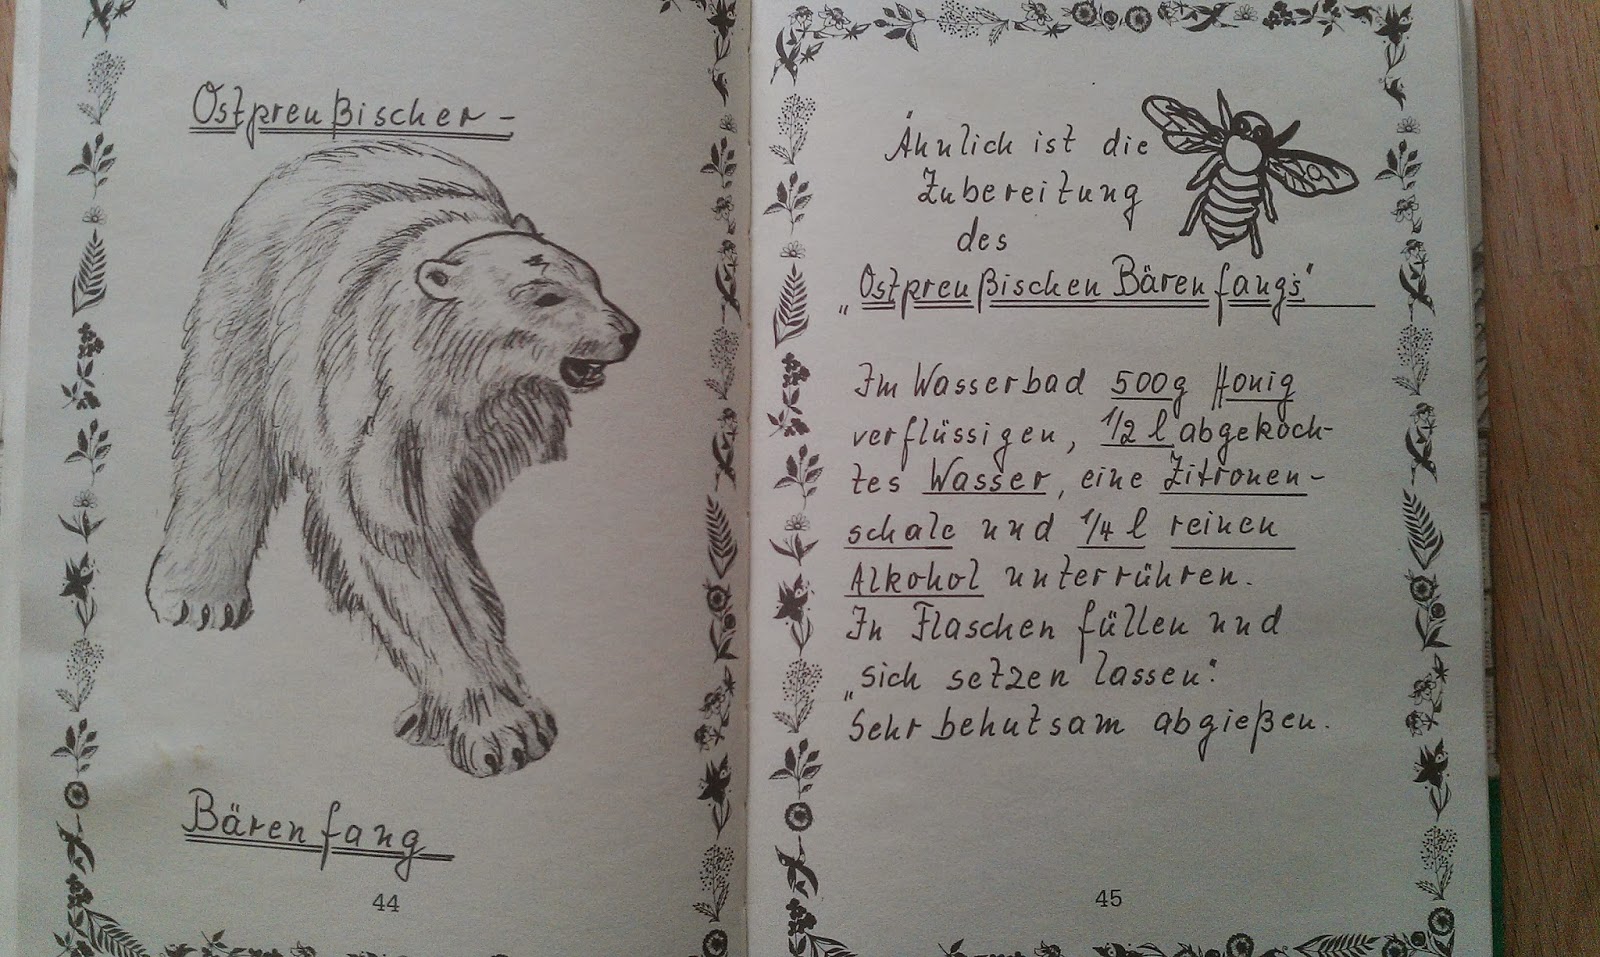 Ostpreußischer-
Bärenfang
44
Ähnlich ist die
Zubereitung
des
„Ostpreußischen Bärenfangs"
Im Wasserbad 500g Honig
verflüssigen, 1/2 l abgekoch-
tes Wasser, eine Zitronen-
schale und 1/4 l reinen
Alkohol unterrühren.
In Flaschen füllen und
„sich setzen lassen".
Sehr behutsam abgießen.
45